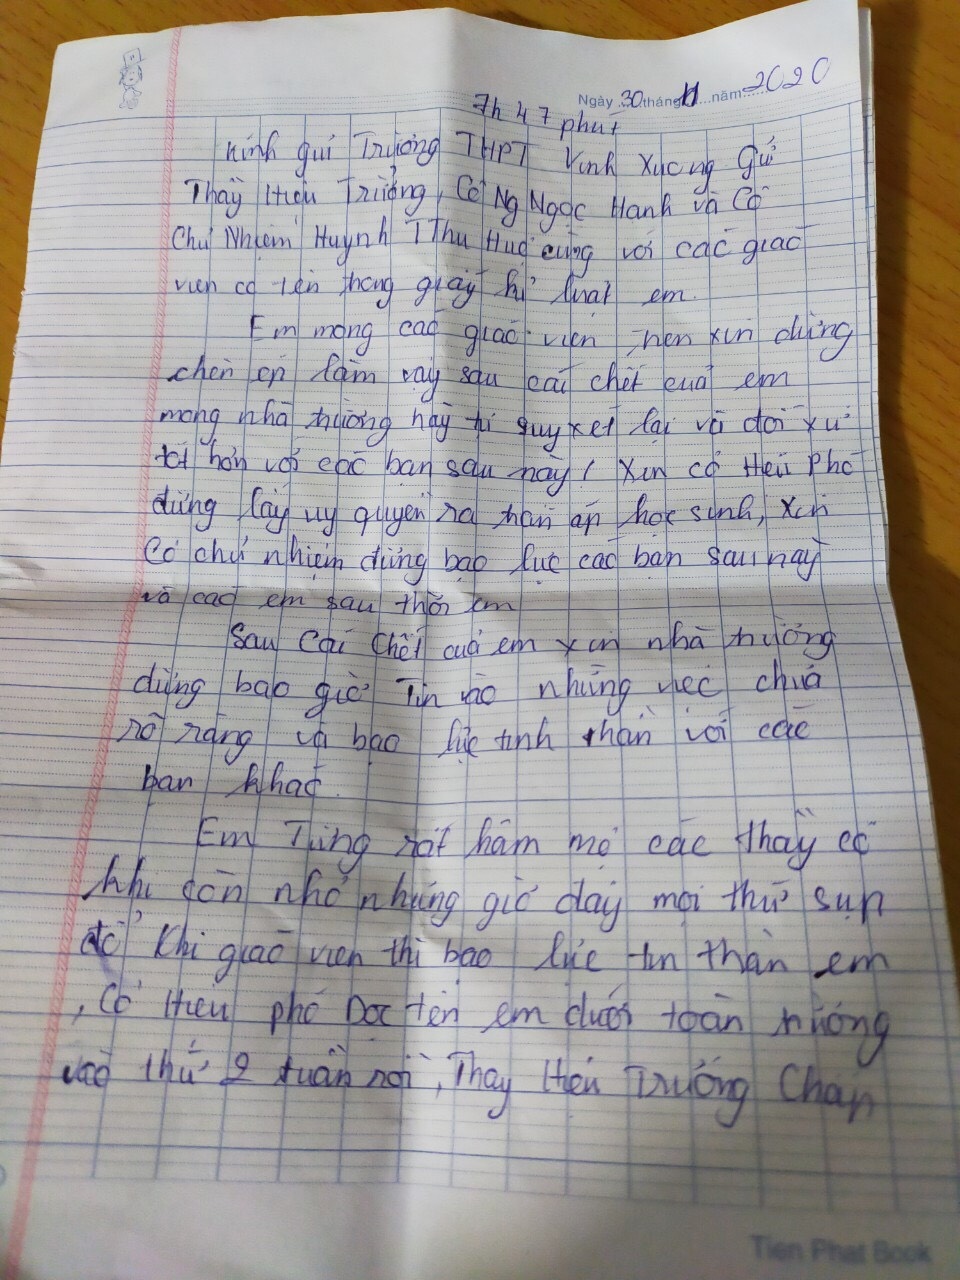 Ngày 30 tháng 11 năm 2020
7h 47 phút
Kính gửi Trường THPT Vĩnh Xương Gử
Thầy Hiệu Trưởng, Cô Ng Ngọc Hạnh và Cô
Chủ Nhiệm Huỳnh T Thu Huệ cùng với các giáo
viên có tên trong giấy kỉ luật em.
Em mong các giáo viên trên xin đừng
chèn ép làm vậy sau cái chết của em
mong nhà trường hãy tự suy xét lại và đối xử
tốt hơn với các bạn sau này, Xin cô Hiệu Phó
đừng lấy uy quyền ra trấn áp học sinh, Xin
Cô chủ nhiệm đừng bạo lực các bạn sau này
và các em sau thời em
Sau Cái chết của em xin nhà trường
đừng bao giờ Tin vào những việc chưa
rõ ràng và bạo lực tinh thần với các
bạn khác.
Em Từng rất hâm mộ các thầy cô
khi còn nhỏ nhưng giờ đây mọi thứ sụp
đổ Khi giáo viên thì bạo lực tin thần em
, Cô Hiệu phó Đọc tên em dưới toàn trường
vào thứ 2 tuần rồi, Thầy Hiệu Trưởng Chấp
Tien Phat Book